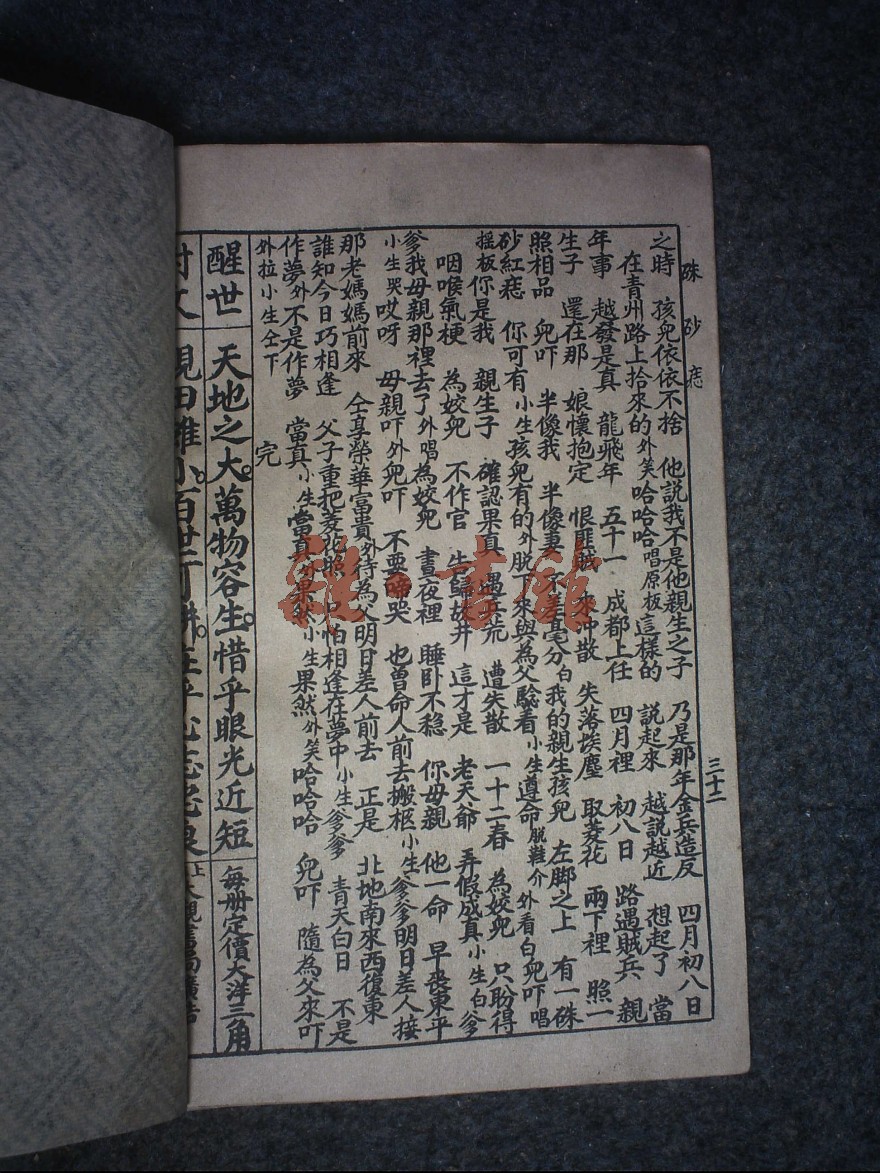 硃砂痣
三十二
之時 孩兒依依不捨 他說我不是他親生之子 乃是那年金兵造反 四月初八日
在青州路上拾來的外笑哈哈哈唱原板這樣的 說起來 越說越近 想起了 當
年事 越發是真 龍飛年 五十一 成都上任 四月裡 初八日 路遇賊兵 親
生子 還在那 娘懷抱定 恨匪賊 來沖散 失落埃塵 取菱花 兩下裡 照一
照相品 兒吓 半像我 半像妻 不差毫分白我的親生孩兒 左脚之上 有一硃
砂紅痣 你可有小生孩兒有的外脫下來與為父騐看小生遵命脫鞋介 外看白兒吓唱
搖板你是我 親生子 確認果真 遇兵荒 遭失散 一十二春 為姣兒 只盼得
咽喉氣梗 為姣兒 不作官 告歸故井 這才是 老天爺 弄假成真小生白爹
爹我母親那裡去了外唱為姣兒 晝夜裡 睡卧不稳 你母親 他一命 早喪東平
小生哭哎呀 母親吓外兒吓 不要啼哭 也曾命人前去搬柩小生爹爹明日差人接
那老媽媽前來 仝享榮華富貴外待為父明日差人前去 正是 北地南來西復東
誰知今日巧相逢 父子重把菱花照 只怕相逢在夢中小生爹爹 青天白日 不是
作夢外不是作夢 當真小生當真外果然小生果然外笑哈哈哈 兒吓 隨為父來吓
外拉小生仝下
完
醒世 天地之大。萬物容生。惜乎眼光近短 每册定價大洋三角
雜·書館